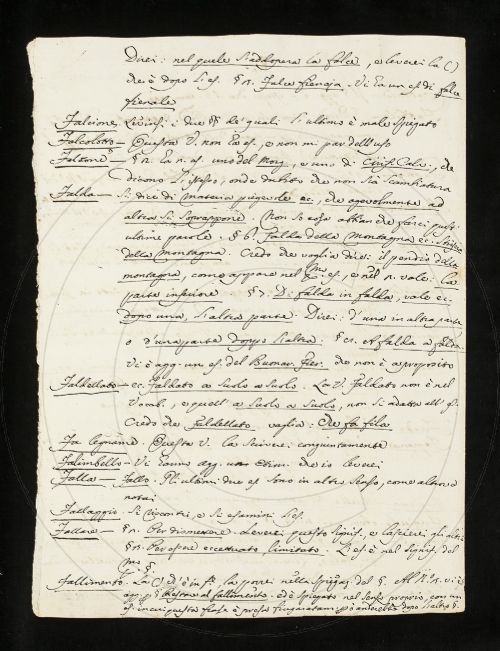 Direi: nel quale s'addopera la falce, e leverei la ()
che è dopo l'es. § n. Falce fienaja. Vi ha un es. di falce
fienale
Falcione. Leverei i due §§ de' quali l'ultimo è male spiegato
Falcolotto — Questa V. non ha es., e non mi par dell'uso
Falcone — § n. ha n. es. uno del Morg. e uno di Ciriff. Calv., che
dicono l'istesso, onde dubito che non sia scambiatura
Falda — Si dice di materia pieghevole ec., che agevolmente ad
altra si soprappone. Non so cosa abbian che farci quest'
ultime parole. § 6. Falda della montagna ec.
della montagna. Credo che voglia dire: il pendio della
montagna, come appare nel es., e nel n. vale: la
parte inferiore § 7. Di falda in falda, vale ec.
dopo una, l'altra parte. Direi: d'una in altra parte
o d'una parte doppo l'altra. § A falda a falda.
Vi è agg. un es. del Buonar. Fier. che non è a proposito
Faldellato — ec. Faldato a suolo a suolo. La V. Faldato non è nel
Vocab., e quell' a suolo a suolo, non si adatta all'
Credo che Faldellato vaglia: Che fa fila
Fa legname. Questa V. la scriverei congiuntamente
Falimbello — Vi hanno agg. un che io leverei
Falla — Fallo. Gl'ultimi due es. sono in altro senso, come altrove
notai
Fallaggio. Si riscontri, e si esamini l'es.
Fallare — § n. Per dismettere. Leverei questo signif. e lascerei gli altri
§ n. Per essere eccettuato, limitato. L'es. è nel signif. del
§.
Fallimento. La () ch'è in fine la porrei nella spiegaz. del §. Al § n. vi è
agg. § Restare al fallimento. ed è spiegato nel senso proprio, con un
es. in cui questa frase è presa